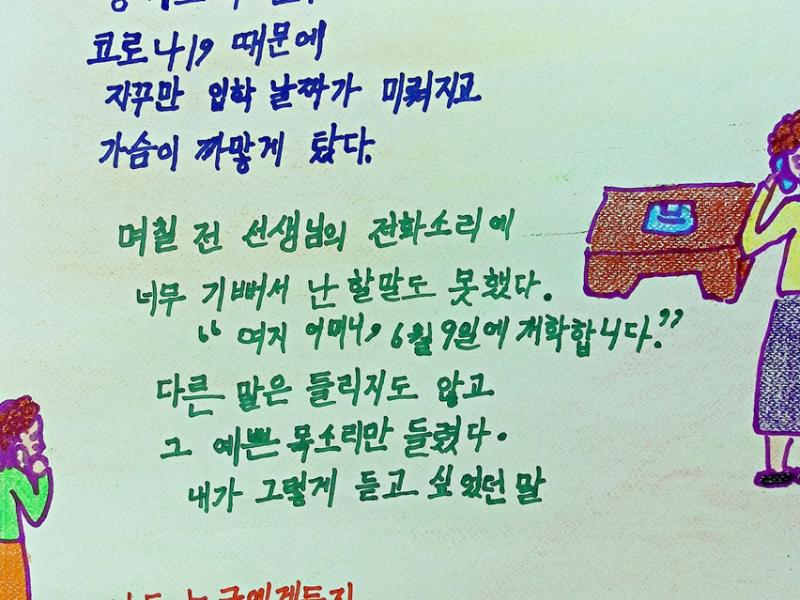 코로나19 때문에
자꾸만 입학 날짜가 미뤄지고
가슴이 까맣게 탔다.
며칠 전 선생님의 전화소리에
너무 기뻐서 난 할말도 못했다.
“여지 어머니, 6월 9일에 개학합니다.”
다른 말은 들리지도 않고
그 예쁜 목소리만 들렸다.
내가 그렇게 듣고 싶었던 말